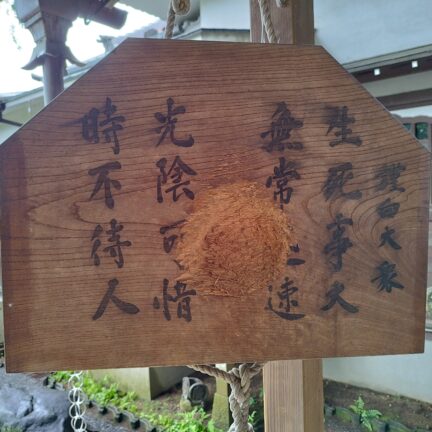 謹白大衆
生死事大
無常迅速
光陰可惜
時不待人